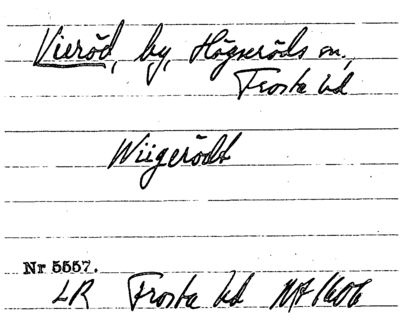 Vieröd, by, Högseröds sn,
Frosta hd
Wiigerödt
Nr 5557.
LR Frosta hd Mt 1606